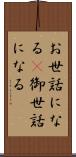 お世話にな
る《御世話
になる